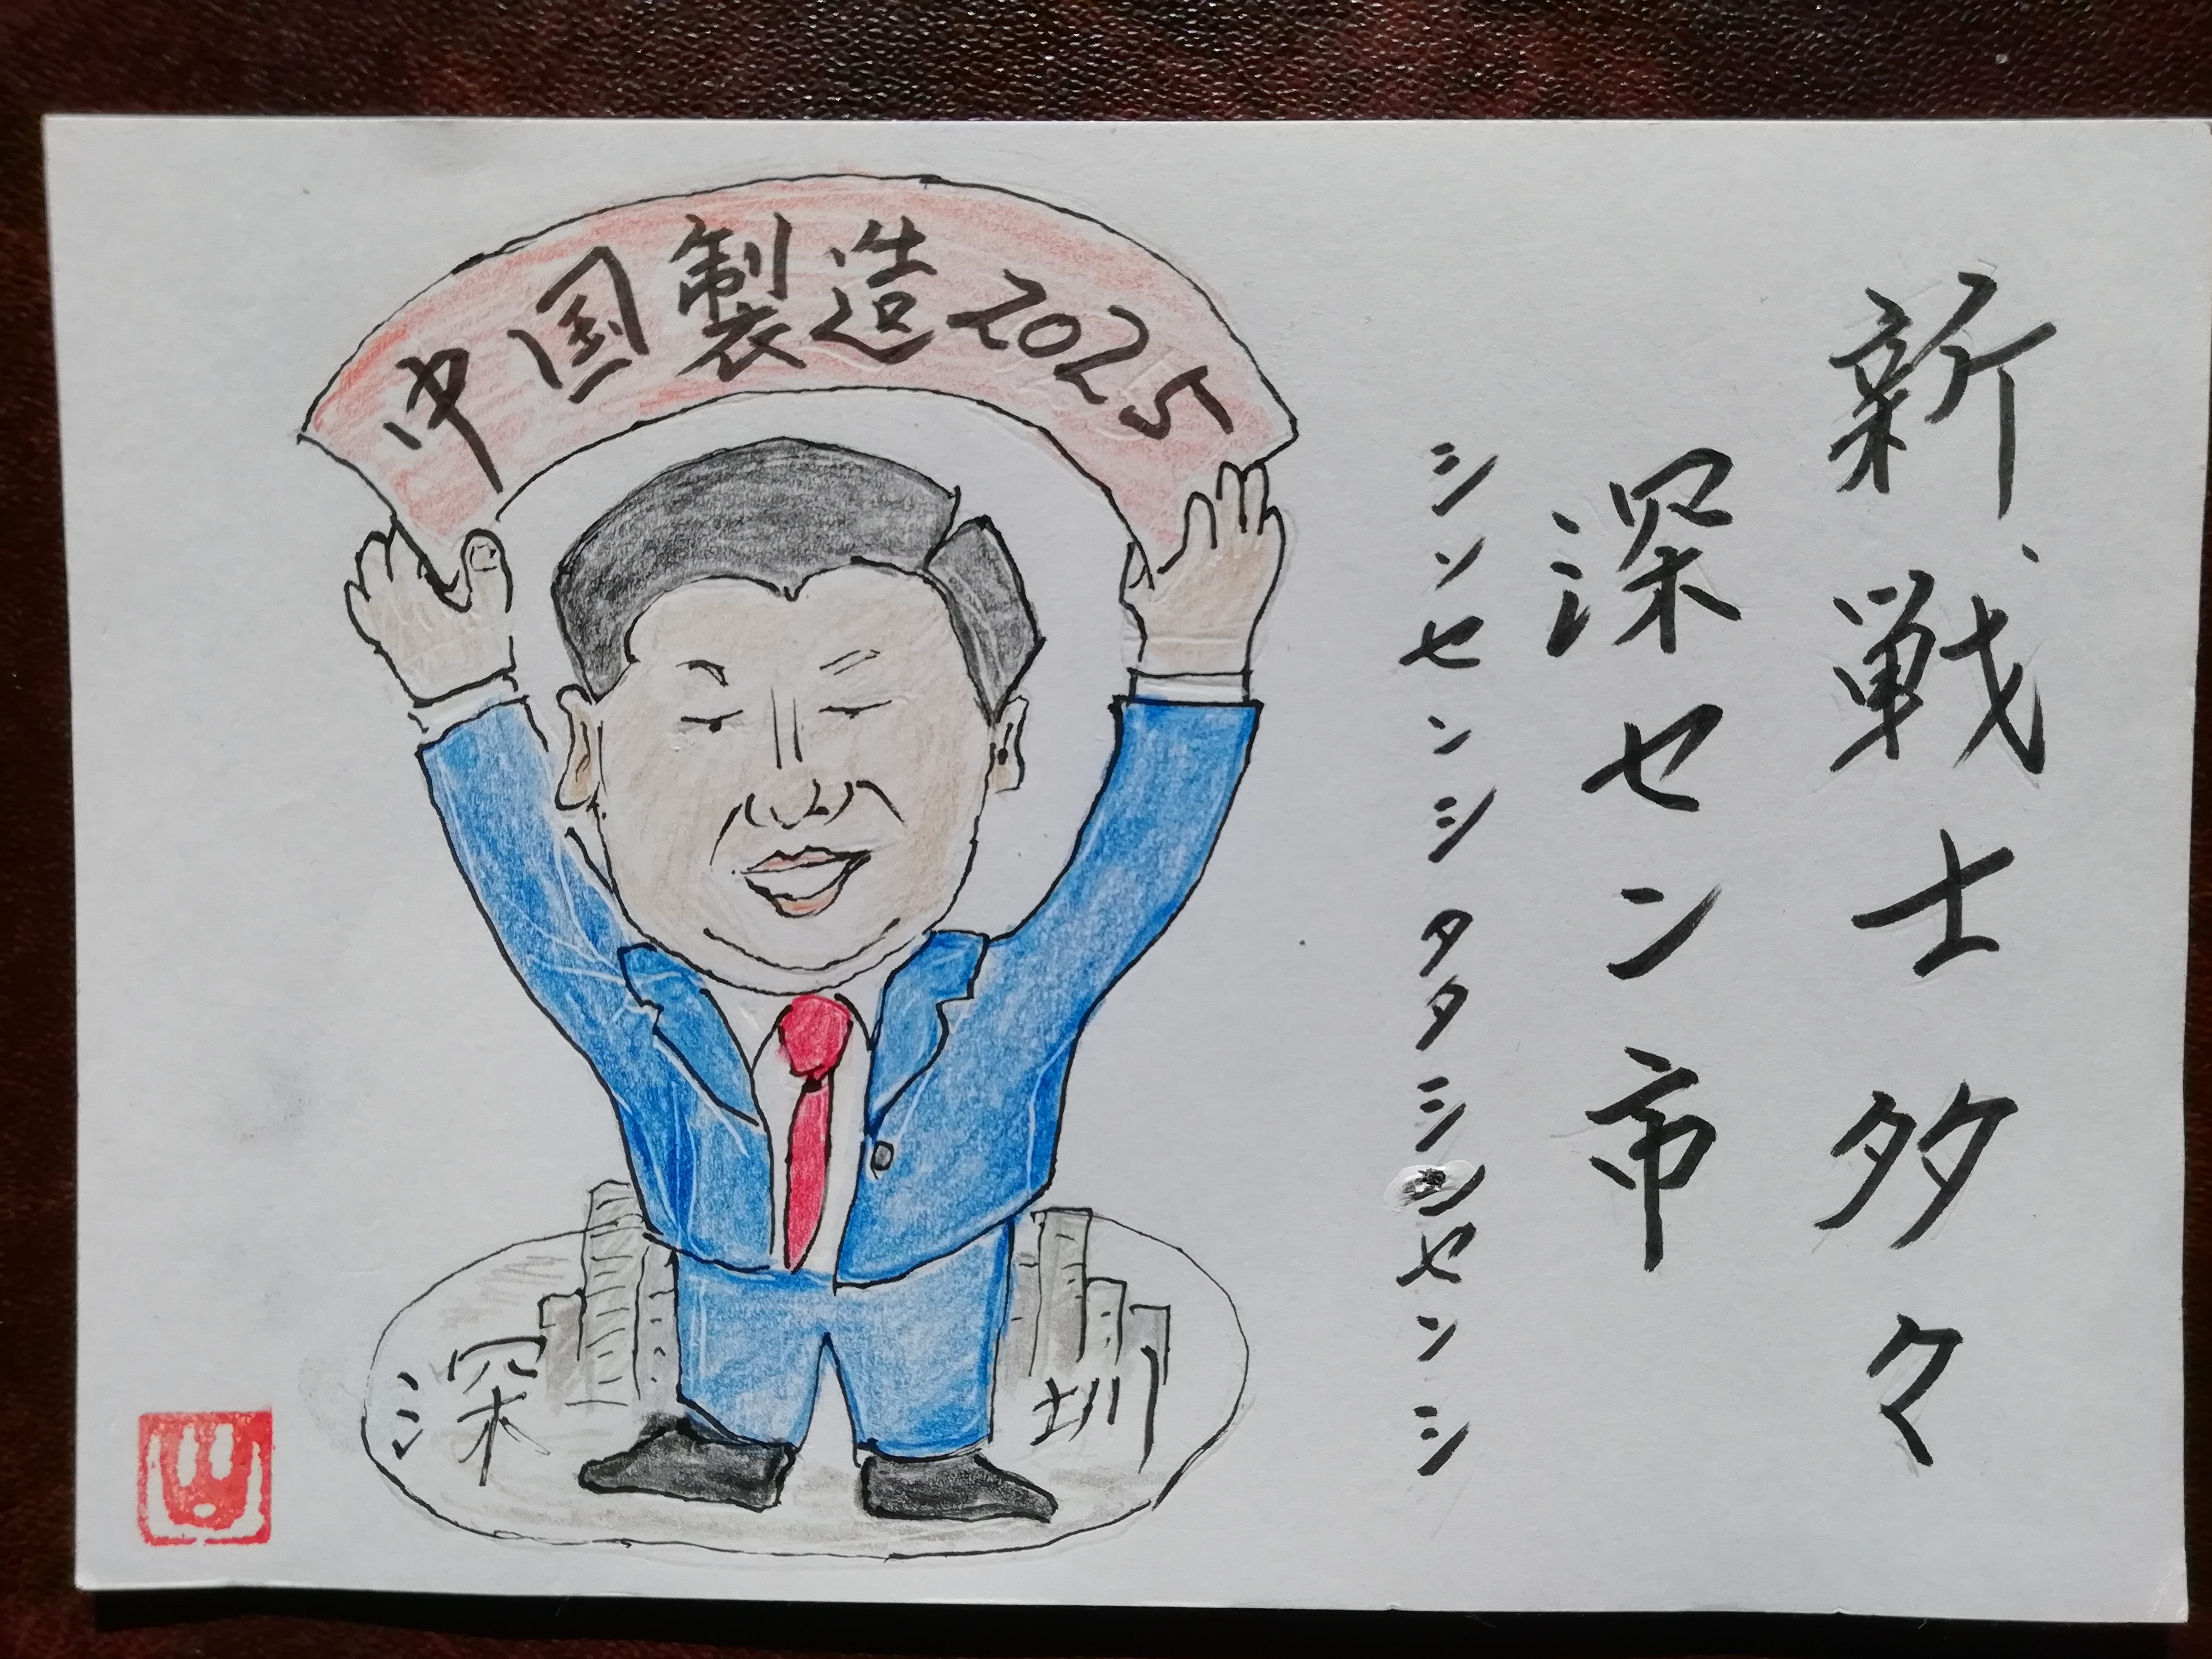 新戦士多々
深セン市
シンセンシタタシンセンシ
中国製造2025
深圳